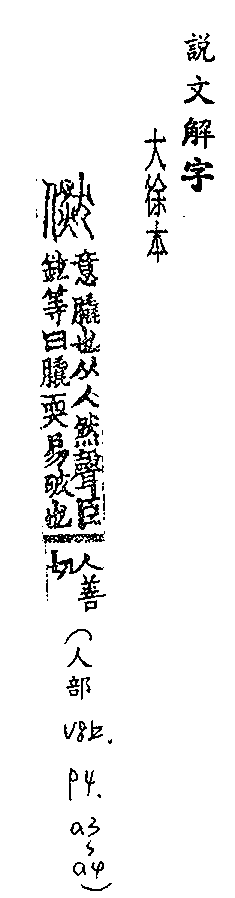 説文解字
大徐本
㒄
意膬也从人然聲臣
鉉等曰膬耎易破也
人善
切
(人部
V8上.
P4.
a3
~
a4)